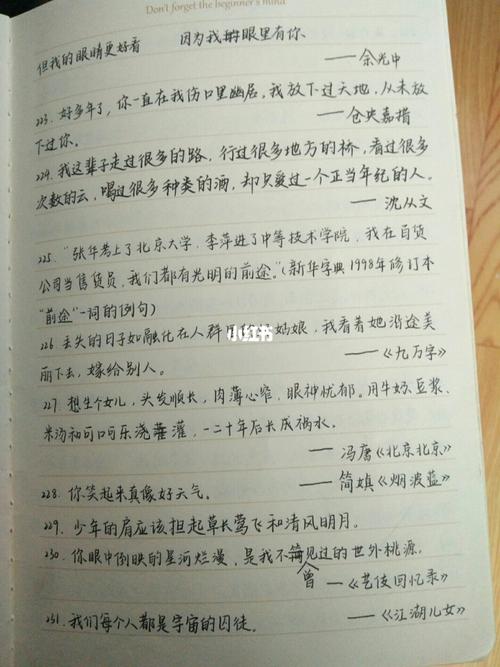 Don't forget the beginner's mind
但我的眼睛更好看 因为我眼里有你
——余光中
223. 好多年了，你一直在我伤口里幽居，我放下过天地，从未放
下过你。 ——仓央嘉措
224. 我这辈子走过很多的路，行过很多地方的桥，看过很多
次数的云，喝过很多种类的酒，却只爱过一个正当年纪的人。
——沈从文
225. “张华考上了北京大学，李萍进了中等技术学院，我在百货
公司当售货员，我们都有光明的前途。”（新华字典1998年修订本
“前途”一词的例句）
226 丢失的日子如融化在人群里 姑娘，我看着她沿途美
丽下去，嫁给别人。 ——《九万字》
227. 想生个女儿，头发顺长，肉薄心窄，眼神忧郁。用牛奶、豆浆、
米汤和可口可乐浇灌，一二十年后长成祸水。
——冯唐《北京北京》
228. 你笑起来真像好天气。 ——简媜《烟波蓝》
229. 少年的肩应该担起草长莺飞和清风明月。
230. 你眼中倒映的星河烂漫，是我不曾见过的世外桃源。
——《艺伎回忆录》
231. 我们每个人都是宇宙的囚徒。 ——《江湖儿女》
小红书